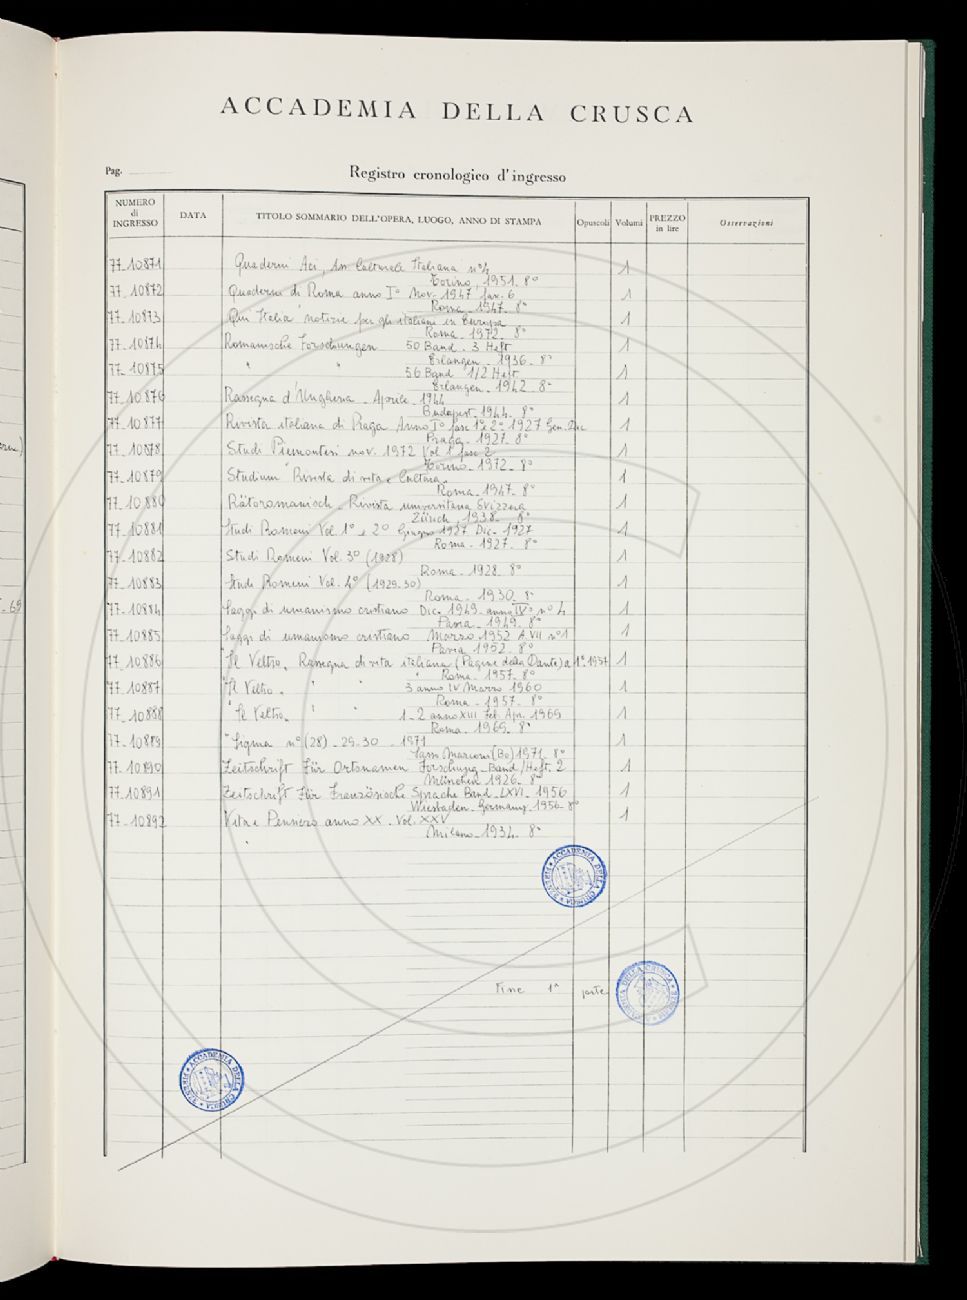 ACCADEMIA DELLA CRUSCA
Pag.
Registro cronologico d'ingresso
NUMERO di INGRESSO DATA TITOLO SOMMARIO DELL'OPERA, LUOGO, ANNO DI STAMPA Opuscoli Volumi PREZZO in lire Osservazioni
77_10871 Quaderni Aci, Ass Culturale Italiana n°4 1
Torino, 1951. 8°
77_10872 Quaderni di Roma anno I° Nov. 1947 fas. 6 1
Roma_1947_8°
77_10873 Qui Italia notizie per gli italiani in Europa 1
Roma_1972_8°
77_10874 Romanische Forschungen 50 Band_3 Heft 1
Erlangen_1936_8°
77_10875 " " 56 Band 1/2 Heft 1
Erlangen_1942_8°
77_10876 Rassegna d'Ungheria_Aprile_1944 1
Budapest_1944_8°
77_10877 Rivista italiana di Praga Anno I° fasc 1° e 2° 1927 Gen. Dic 1
Praga_1927_8°
77_10878 Studi Piemontesi nov. 1972 Vol 1 fasc 2 1
Torino_1972_8°
77_10879 Studium Rivista di vita e Cultura. 1
Roma_1947_8°
77_10880 Rätoromanisch_Rivista universitaria Svizzera 1
Zürich_1938_8°
77_10881 Studi Romeni Vol. 1° e 2° Giugno 1927 Dic. 1927 1
Roma_1927_8°
77_10882 Studi Romeni Vol. 3° (1928) 1
Roma_1928_8°
77_10883 Studi Romeni Vol. 4° (1929-30) 1
Roma_1930_8°
77_10884 Saggi di umanismo cristiano Dic. 1949_anno IV° n° 4 1
Pavia_1949_8°
77_10885 Saggi di umanismo cristiano Marzo 1952 A. VII n°1 1
Pavia 1952_8°
77_10886 "Il Veltro. Rassegna di vita italiana (Pagine della Dante) a 1° 1957 1
Roma_1957_8°
77_10887 "Il Veltro. " " 3 anno IV Marzo 1960 1
Roma_1957_8°
77_10888 "Il Veltro. " " 1_2 anno XIII Feb. Apr. 1969 1
Roma_1969_8°
77_10889 "Sigma n°(28)_29-30_1971 1
Sasso Marconi (Bo) 1971_8°
77_10890 Zeitschrift Für Ortsnamen Forschung_Band/Heft. 2 1
München 1926_8°
77_10891 Zeitschrift Für Französische Sprache Band_LXVI_1956 1
Wiesbaden_Germany_1956_8°
77_10892 Vita e Pensiero anno XX. Vol. XXV 1
Milano_1934_8°
ACCADEMIA DELLA CRUSCA * FIRENZE *
Fine 1ª parte
ACCADEMIA DELLA CRUSCA * FIRENZE *
ACCADEMIA DELLA CRUSCA * FIRENZE *